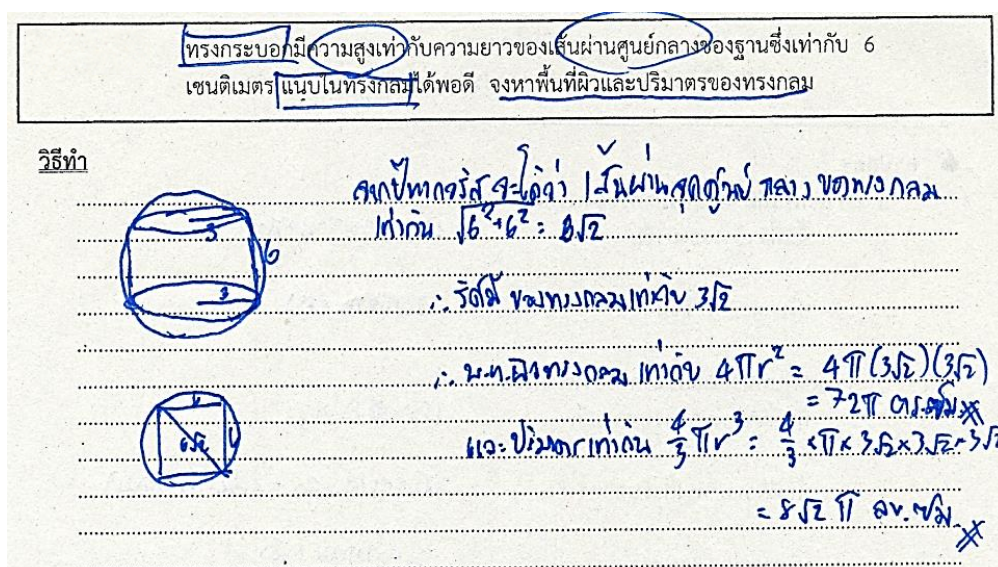 ทรงกระบอกมีความสูงเท่ากับความยาวของเส้นผ่านศูนย์กลางของฐานซึ่งเท่ากับ 6
เซนติเมตร แนบในทรงกลมได้พอดี จงหาพื้นที่ผิวและปริมาตรของทรงกลม
วิธีทำ
จากปีทาโกรัส จะได้ว่า เส้นผ่านจุดศูนย์กลาง ของทรงกลม
เท่ากับ √6²+6² = 6√2
3
6
3
∴ รัศมี ของทรงกลมเท่ากับ 3√2
∴ พ.ท.ผิวทรงกลม เท่ากับ 4πr² = 4π(3√2)(3√2)
= 72π ตร.ซม.
6
6
6√2
และปริมาตรเท่ากับ 4/3 πr³ = 4/3 × π × 3√2 × 3√2 × 3√2
= 8√2 π ลบ.ซม.